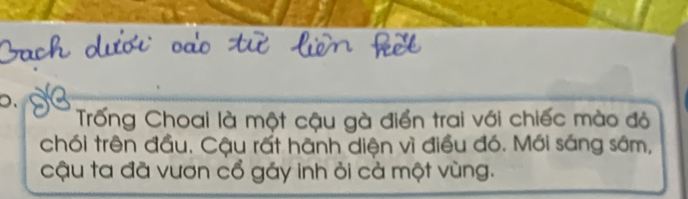 Gạch dưới các từ liên kết
Trống Choai là một cậu gà điển trai với chiếc mào đỏ
chói trên đầu. Cậu rất hãnh diện vì điều đó. Mới sáng sớm,
cậu ta đã vươn cổ gáy inh ỏi cả một vùng.